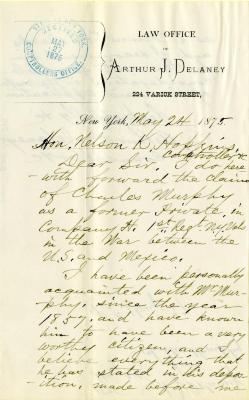 LAW OFFICE
OF
ARTHUR J. DELANEY
224 VARICK STREET,
RECEIVED
MAY
27
1875
COMPTROLLER'S OFFICE.
New York, May 24 1875
Hon. Nelson K. Hopkins
Comptroller &c
Dear Sir I do here
with forward the claim
of Charles Murphy
as a former private in
Company H. 1st Regt. NY Vols
in the War between the
U.S. and Mexico.
I have been personally
acquainted with Mr Mur-
phy, since the year
1857, and have known
him to have been a very
worthy citizen, and I
believe everything that
he has stated in his depo-
sition, made before me